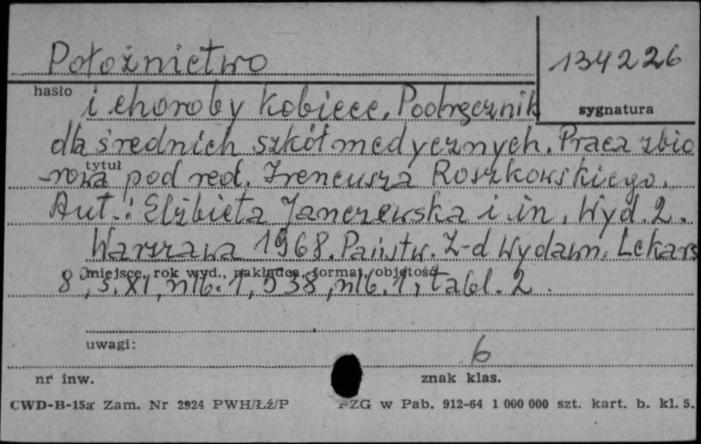 Położnictwo
134226
hasło
sygnatura
i choroby kobiece. Podręcznik
dla średnich szkół medycznych. Praca zbio
tytuł
-rowa pod red. Ireneusza Roszkowskiego.
Aut.: Elżbieta Janczewska i in. Wyd. 2.
Warszawa 1968. Państw. Z-d Wydawn. Lekars
miejsce, rok wyd., nakładca, format, objętość
8°, s. XI, nlb. 1, 538, nlb. 1, tabl. 2.
uwagi:
6
nr inw.
znak klas.
CWD-B-15a Zam. Nr 2924 PWH/Łź/P
PZG w Pab. 912-64 1 000 000 szt. kart. b. kl. 5.